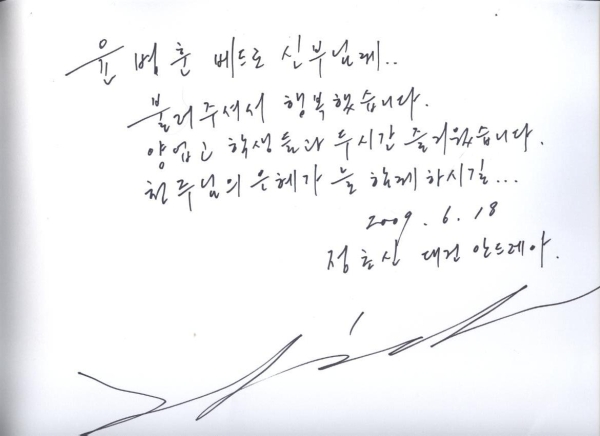 윤병훈 베드로 신부님께..
불러주셔서 행복했습니다.
양업고 학생들과 두시간 즐거웠습니다.
천주님의 은혜가 늘 함께 하시길...
2009. 6. 18
정호신 대건 안드레아.